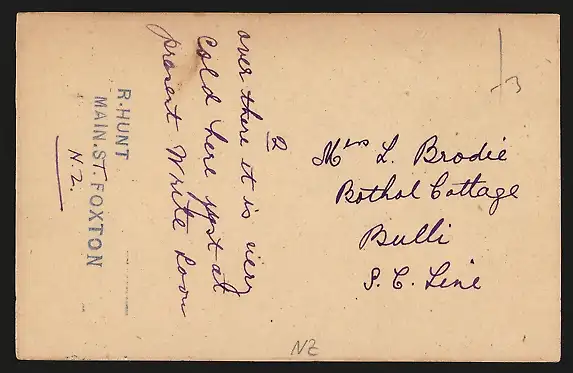 2
over there it is very
cold here just at
present Write soon
R. HUNT
MAIN. ST. FOXTON
N.Z.
Mrs L. Brodie
Bothal Cottage
Bulli
S. C. Line
3
NZ